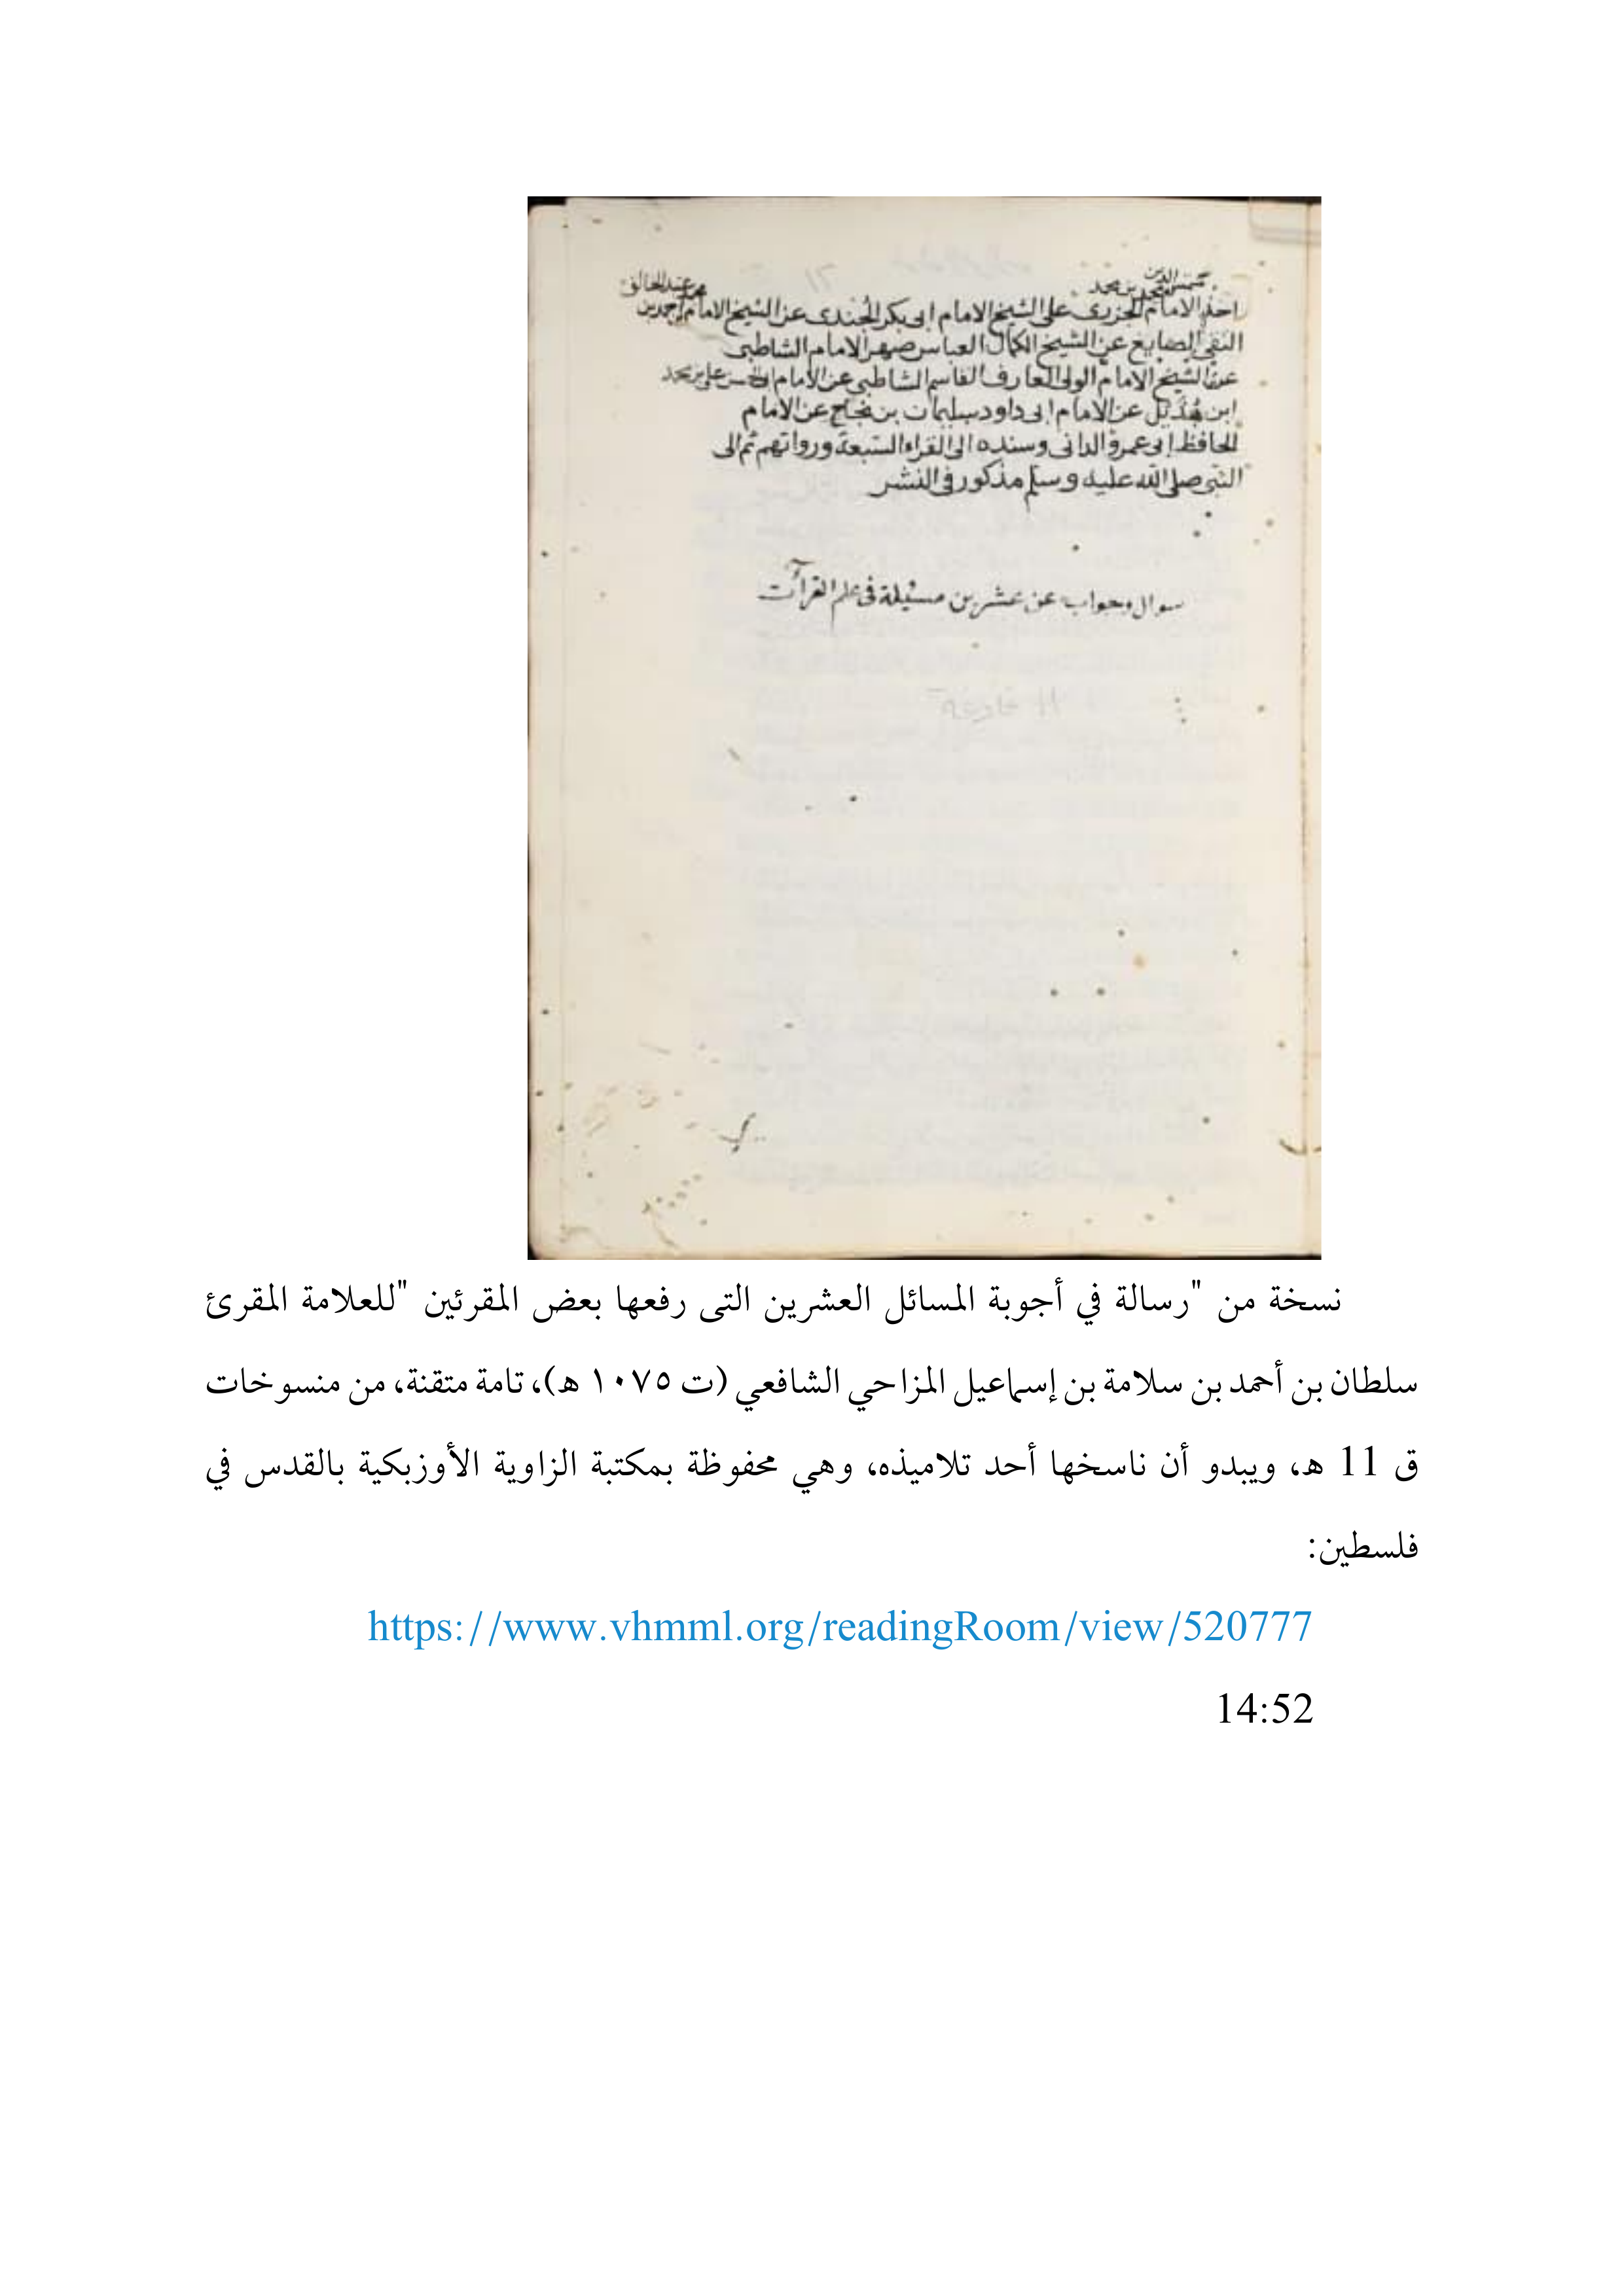 شمس الدين محمد بن محمد
محمد بن عبد الخالق
اخذ الامام الجزرى على الشيخ الامام ابى بكر الجندى عن الشيخ الامام احمد بن
التقى الصايغ عن الشيخ الكمال العباس صهر الامام الشاطبى
عن الشيخ الامام الولى العارف القاسم الشاطبى عن الامام ابى الحسن على بن محمد
ابن هُذَيْل عن الامام ابى داود سليمان بن نجاح عن الامام
الحافظ ابى عمرو الدانى وسنده الى القراء السبعة ورواتهم ثم الى
النبى صلى الله عليه وسلم مذكور فى النشر
سوال وجواب عن عشرين مسئيلة فى علم القرآت
نسخة من "رسالة في أجوبة المسائل العشرين التى رفعها بعض المقرئين "للعلامة المقرئ
سلطان بن أحمد بن سلامة بن إسماعيل المزاحي الشافعي (ت ١٠٧٥ هـ)، تامة متقنة، من منسوخات
ق 11 هـ، ويبدو أن ناسخها أحد تلاميذه، وهي محفوظة بمكتبة الزاوية الأوزبكية بالقدس في
فلسطين:
https://www.vhmml.org/readingRoom/view/520777
14:52